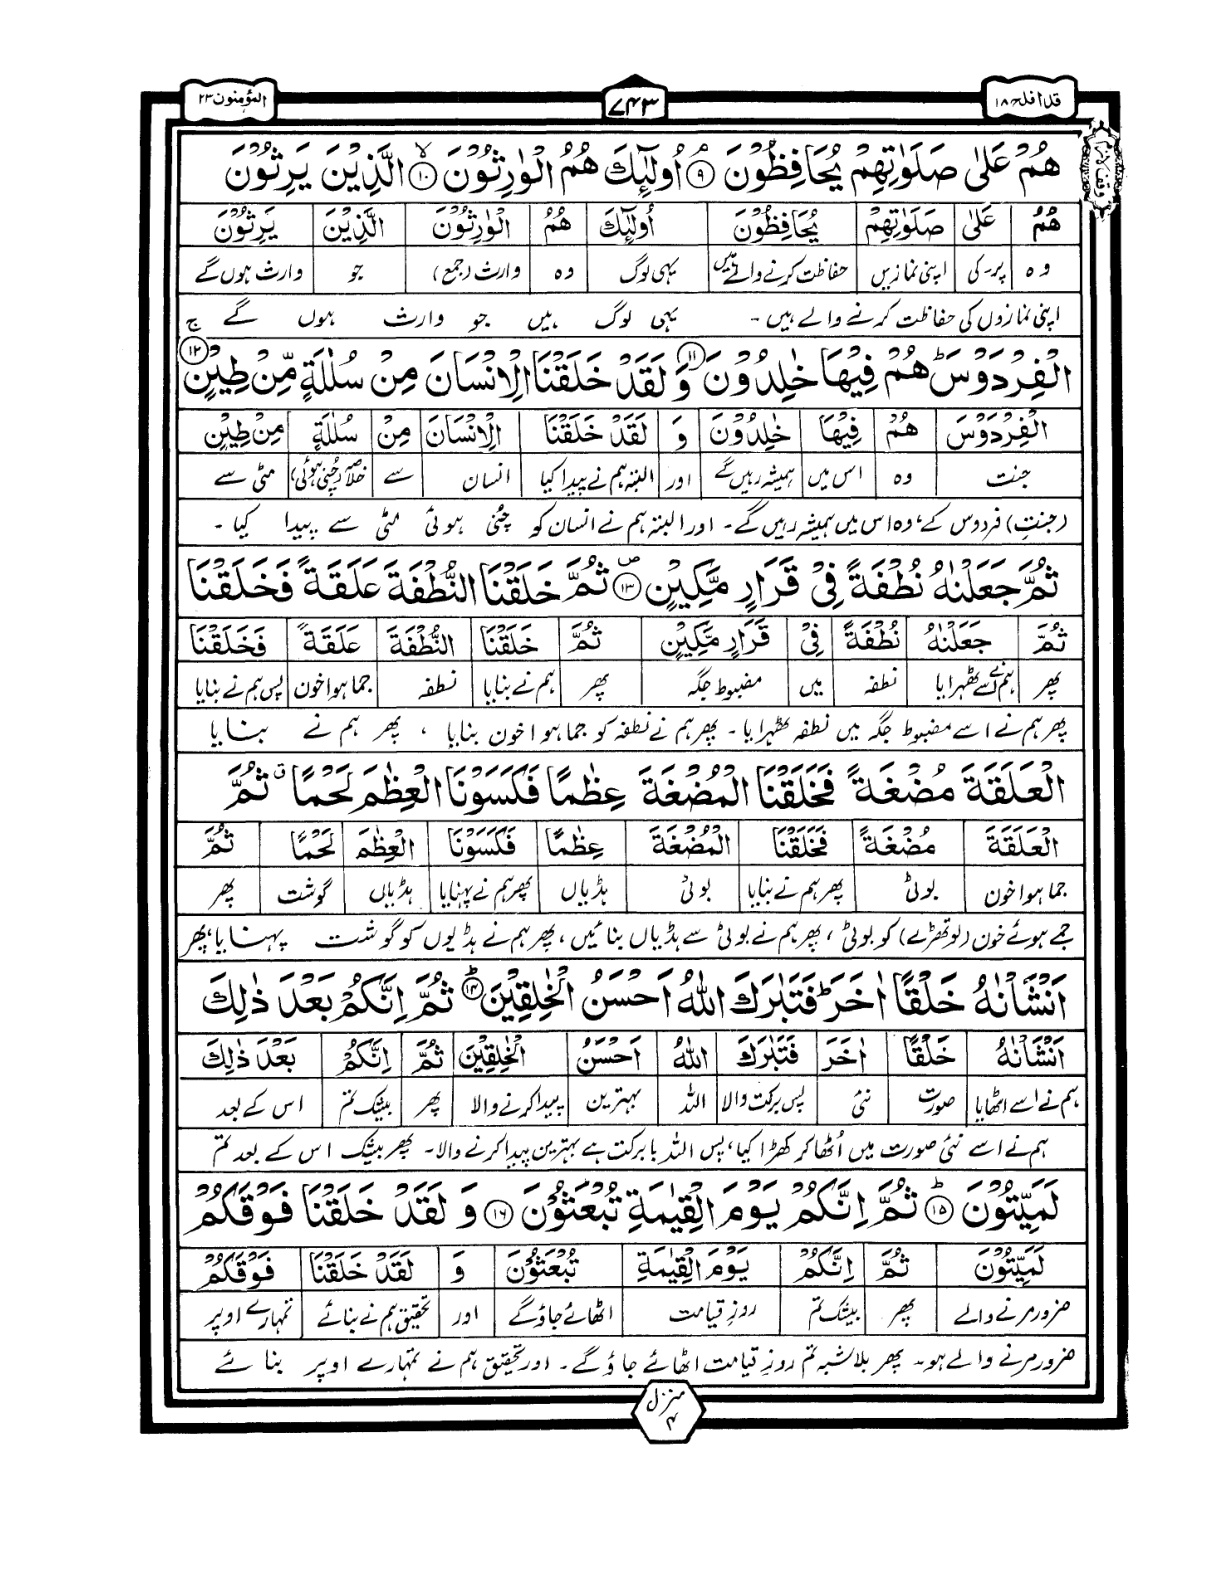 المؤمنون ٢٣
٧٤٣
قد افلح ١٨
هُمْ عَلٰى صَلَوٰتِهِمْ يُحَافِظُوْنَ ۝۹ اُولٰٓئِكَ هُمُ الْوٰرِثُوْنَ ۝۱۰ الَّذِيْنَ يَرِثُوْنَ
هُمْ عَلٰى صَلَوٰتِهِمْ يُحَافِظُوْنَ اُولٰٓئِكَ هُمُ الْوٰرِثُوْنَ الَّذِيْنَ يَرِثُوْنَ
وہ پر۔ کی اپنی نمازیں حفاظت کرنے والے ہیں یہی لوگ وہ وارث (جمع) جو وارث ہوں گے
اپنی نمازوں کی حفاظت کرنے والے ہیں ۔ یہی لوگ ہیں جو وارث ہوں گے
الْفِرْدَوْسَ ؕ هُمْ فِيْهَا خٰلِدُوْنَ ۝۱۱ وَ لَقَدْ خَلَقْنَا الْاِنْسَانَ مِنْ سُلٰلَةٍ مِّنْ طِيْنٍ ۝۱۲
الْفِرْدَوْسَ هُمْ فِيْهَا خٰلِدُوْنَ وَ لَقَدْ خَلَقْنَا الْاِنْسَانَ مِنْ سُلٰلَةٍ مِنْ طِيْنٍ
جنت وہ اس میں ہمیشہ رہیں گے اور البتہ ہم نے پیدا کیا انسان سے خلاصہ (چنی ہوئی) مٹی سے
(جنت) فردوس کے، وہ اس میں ہمیشہ رہیں گے۔ اور البتہ ہم نے انسان کو چنی ہوئی مٹی سے پیدا کیا ۔
ثُمَّ جَعَلْنٰهُ نُطْفَةً فِيْ قَرَارٍ مَّكِيْنٍ ۝۱۳ ثُمَّ خَلَقْنَا النُّطْفَةَ عَلَقَةً فَخَلَقْنَا
ثُمَّ جَعَلْنٰهُ نُطْفَةً فِيْ قَرَارٍ مَّكِيْنٍ ثُمَّ خَلَقْنَا النُّطْفَةَ عَلَقَةً فَخَلَقْنَا
پھر ہم نے اسے ٹھہرایا نطفہ میں مضبوط جگہ پھر ہم نے بنایا نطفہ جما ہوا خون پس ہم نے بنایا
پھر ہم نے اسے مضبوط جگہ میں نطفہ ٹھہرایا ۔ پھر ہم نے نطفہ کو جما ہوا خون بنایا ، پھر ہم نے بنایا
الْعَلَقَةَ مُضْغَةً فَخَلَقْنَا الْمُضْغَةَ عِظٰمًا فَكَسَوْنَا الْعِظٰمَ لَحْمًا ۗ ثُمَّ
الْعَلَقَةَ مُضْغَةً فَخَلَقْنَا الْمُضْغَةَ عِظٰمًا فَكَسَوْنَا الْعِظٰمَ لَحْمًا ثُمَّ
جما ہوا خون بوٹی پھر ہم نے بنایا بوٹی ہڈیاں پھر ہم نے پہنایا ہڈیاں گوشت پھر
جمے ہوئے خون (لوتھڑے) کو بوٹی ، پھر ہم نے بوٹی سے ہڈیاں بنائیں ، پھر ہم نے ہڈیوں کو گوشت پہنایا، پھر
اَنْشَاْنٰهُ خَلْقًا اٰخَرَ ؕ فَتَبٰرَكَ اللّٰهُ اَحْسَنُ الْخٰلِقِيْنَ ۝۱۴ ثُمَّ اِنَّكُمْ بَعْدَ ذٰلِكَ
اَنْشَاْنٰهُ خَلْقًا اٰخَرَ فَتَبٰرَكَ اللّٰهُ اَحْسَنُ الْخٰلِقِيْنَ ثُمَّ اِنَّكُمْ بَعْدَ ذٰلِكَ
ہم نے اسے اٹھایا صورت نئی پس برکت والا اللہ بہترین پیدا کرنے والا پھر بیشک تم اس کے بعد
ہم نے اسے نئی صورت میں اُٹھا کر کھڑا کیا، پس اللہ بابرکت ہے بہترین پیدا کرنے والا۔ پھر بیشک اس کے بعد تم
لَمَيِّتُوْنَ ۝۱۵ ثُمَّ اِنَّكُمْ يَوْمَ الْقِيٰمَةِ تُبْعَثُوْنَ ۝۱۶ وَ لَقَدْ خَلَقْنَا فَوْقَكُمْ
لَمَيِّتُوْنَ ثُمَّ اِنَّكُمْ يَوْمَ الْقِيٰمَةِ تُبْعَثُوْنَ وَ لَقَدْ خَلَقْنَا فَوْقَكُمْ
ضرور مرنے والے پھر بیشک تم روزِ قیامت اٹھائے جاؤ گے اور تحقیق ہم نے بنائے تمہارے اوپر
ضرور مرنے والے ہو۔ پھر بلاشبہ تم روزِ قیامت اٹھائے جاؤ گے ۔ اور تحقیق ہم نے تمہارے اوپر بنائے
منزل ۴